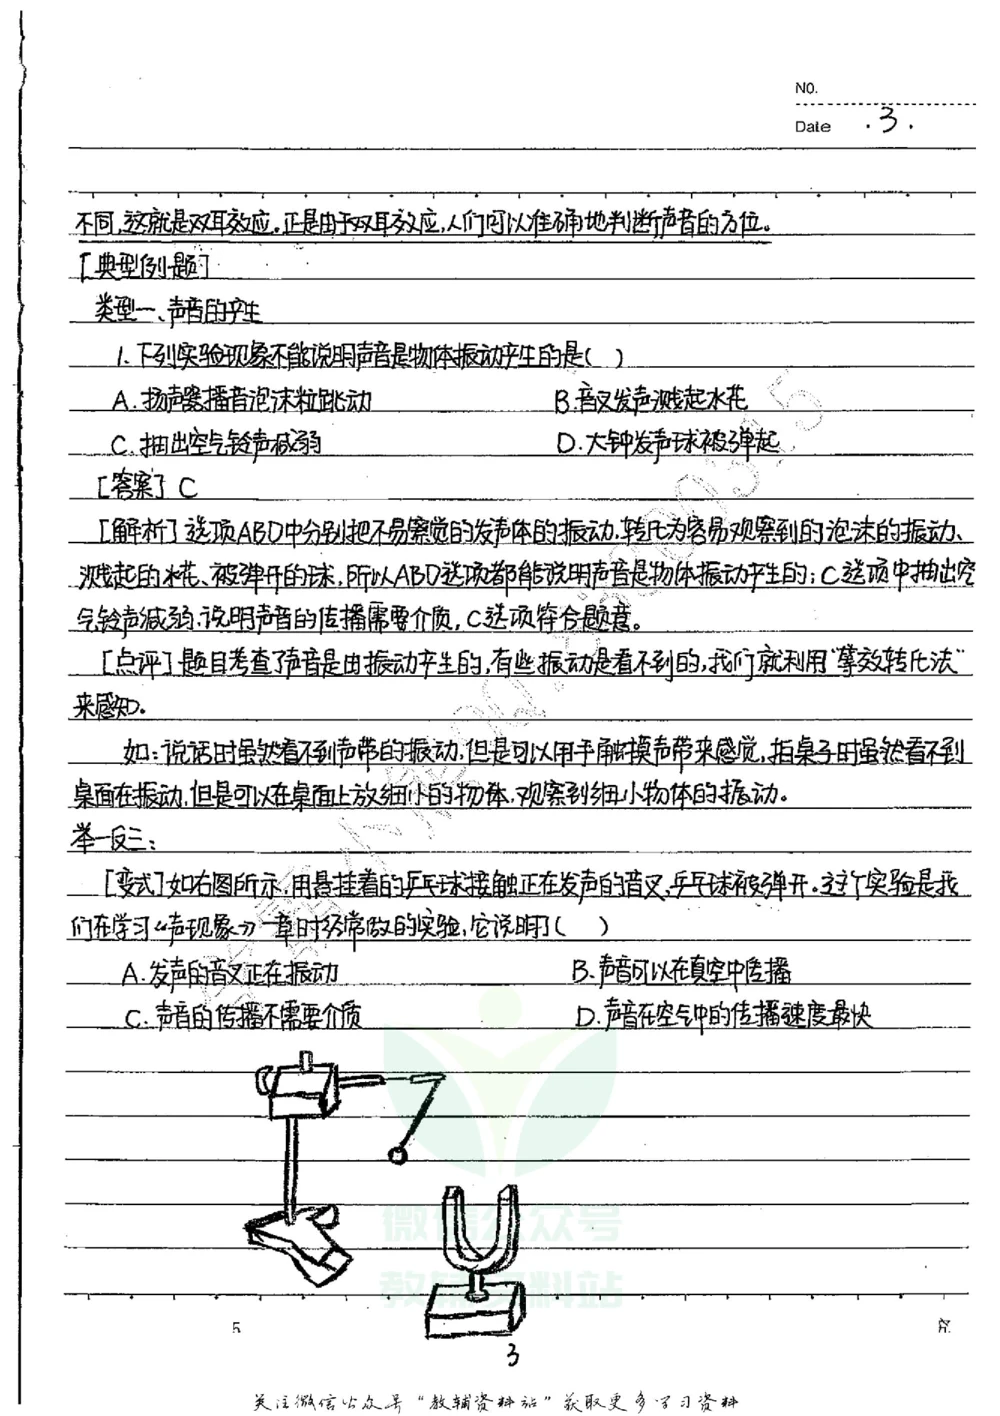 NO.
Date .3.
不同,这就是双耳效应。正是由于双耳效应,人们可以准确地判断声音的方位。
[典型例题]
类型一、声音的产生
1.下列实验现象不能说明声音是物体振动产生的是( )
A.扬声器播音泡沫粒跳动 B.音叉发声溅起水花
C.抽出空气铃声减弱 D.大钟发声球被弹起
[答案] C
[解析]选项ABD中分别把不易察觉的发声体的振动,转化为容易观察到的泡沫的振动、
溅起的水花、被弹开的球,所以ABD选项都能说明声音是物体振动产生的;C选项中抽出空
气铃声减弱,说明声音的传播需要介质,C选项符合题意。
[点评]题目考查了声音是由振动产生的,有些振动是看不到的,我们就利用“等效转化法”
来感知。
如:说话时虽然看不到声带的振动,但是可以用手触摸声带来感觉,拍桌子时虽然看不到
桌面在振动,但是可以在桌面上放细小的物体,观察到细小物体的振动。
举一反三:
[变式]如右图所示,用悬挂着的乒乓球接触正在发声的音叉,乒乓球被弹开。这个实验是我
们在学习《声现象》一章时经常做的实验,它说明了( )
A.发声的音叉正在振动 B.声音可以在真空中传播
C.声音的传播不需要介质 D.声音在空气中的传播速度最快
微信公众号
教辅资料站
5
3
关注微信公众号“教辅资料站”获取更多学习资料